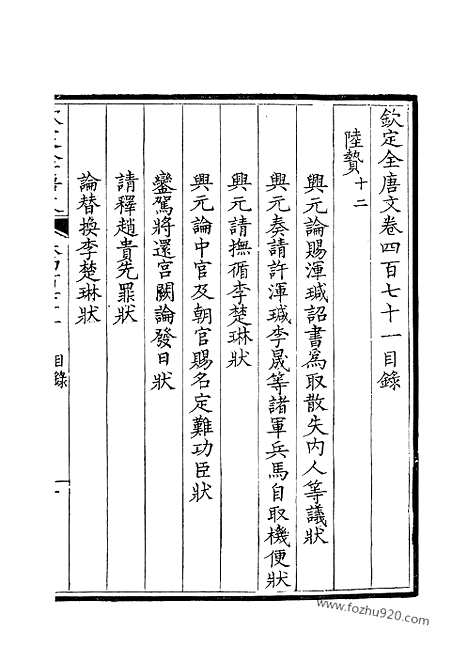 欽定全唐文卷四百七十一目錄
陸贄十二
興元論賜渾瑊詔書爲取散失內人等議狀
興元奏請許渾瑊李晟等諸軍兵馬自取機便狀
興元請撫循李楚琳狀
興元論中官及朝官賜名定難功臣狀
鑾駕將還宮闕論發日狀
請釋趙貴先罪狀
論替換李楚琳狀
目錄
一
www.fozhu920.com